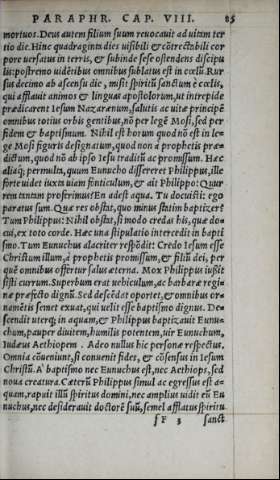 PARAPHR. CAP. VIII. 85
mortuos. Deus autem filium suum reuocauit ad uitam ter
tio die. Hinc quadraginta dies uisibili & cōtrectabili cor
pore uersatus in terris, & subinde sese ostendens discipu
lis: postremo uidētibus omnibus sublatus est in cœlū. Rur
sus decimo ab ascensu die, misit spiritū sanctum è cœlis,
qui afflauit animos & linguas apostolorum, ut intrepide
prædicarent Iesum Nazarænum, salutis ac uitæ principē
omnibus totius orbis gentibus, nō per legē Mosi, sed per
fidem & baptismum. Nihil est horum quod nō est in le-
ge Mosi figuris designatum, quod non à prophetis præ-
dictum, quod nō ab ipso Iesu traditū ac promissum. Hæc
aliaq; permulta, quum Eunucho dissereret Philippus, ille
forte uidet iuxta uiam fonticulum, & ait Philippo: Quor
rem tantam proferimus? En adest aqua. Tu docuisti: ego
paratus sum. Quæ res obstat, quo minus statim baptizer?
Tum Philippus: Nihil obstat, si modo credas his, quæ do-
cui, ex toto corde. Hæc una stipulatio intercedit in bapti
smo. Tum Eunuchus alacriter respōdit: Credo Iesum esse
Christum illum, à prophetis promissum, & filiū dei, per
quē omnibus offertur salus æterna. Mox Philippus iussit
sisti currum. Superbum erat uehiculum, ac barbaræ regi-
næ præfecto dignū. Sed descēdat oportet, & omnibus or-
namētis semet exuat, qui uelit esse baptismo dignus. De-
scendit uterq; in aquam, & Philippus baptizauit Eunu-
chum, pauper diuitem, humilis potentem, uir Eunuchum,
Iudæus Aethiopem. Adeo nullus hic personæ respectus.
Omnia cōueniunt, si conuenit fides, & cōsensus in Iesum
Christū. A' baptismo nec Eunuchus est, nec Aethiops, sed
noua creatura. Cæterū Philippus simul ac egressus est a-
quam, rapuit illū spiritus domini, nec amplius uidit eū Eu
nuchus, nec desiderauit doctorē suū, semel afflatus spiritu
fF 3 sanct